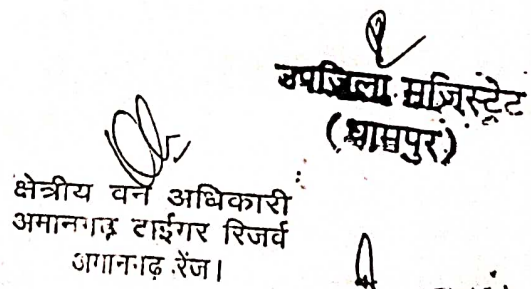 उपजिला मजिस्ट्रेट
(धामपुर)
क्षेत्रीय वन अधिकारी
अमानगढ़ टाईगर रिजर्व
अमानगढ़ रेंज।